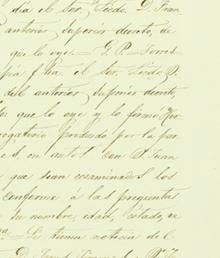 dia el Sor. Lcdo. D. Juan
anterior Superior decreto, de
que lo oyó = G. P. = Torres
fha. el Sor. Lcdo. D.
del anterior superior decreto,
que lo oyó y lo firmó
rogatorio producido por la par
en autos con D. Juan
que sean ecsaminados los
conforme á las preguntas
su nombre, edad, estado, ve
Si tienen noticia del